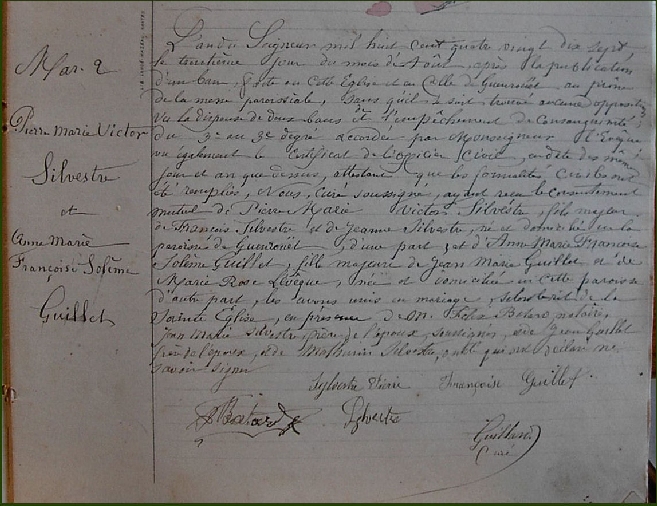 Mar. 2
Pierre Marie Victor
Silvestre
et
Anne Marie
Françoise Solème
Guillet
L'an du Seigneur mil huit cent quatre vingt dix sept
le jour du mois d'Août, après la publication
d'un ban, faite en cette Eglise et en celle de Guenrouët au prône
de la messe paroissiale, sans qu'il se soit trouvé aucune opposition
Vu la dispense de deux bans et l'empêchement de consanguinité
du 3e au 3e degré accordée par Monseigneur l'Evêque
vu également le certificat de l'officier civil, en date des mêmes
jour et an que dessus, attestant que les formalités civiles ont
été remplies, Nous, Curé soussigné, ayant reçu le consentement
mutuel de Pierre Marie Victor Silvestre, fils majeur
de François Silvestre et de Jeanne Silvestre, né et domicilié en la
paroisse de Guenrouet, d'une part, et d'Anne Marie Françoise
Solème Guillet, fille majeure de Jean Marie Guillet et de
Marie Rose Levêque, née et domiciliée en cette paroisse
d'autre part, les avons unis en mariage, selon le rit de la
Sainte Eglise, en présence de M. Félix Batard notaire,
Jean Marie Silvestre frère de l'époux, soussignés, de Jean Guillet
de l'époux, et de Mathurin Silvestre, qui ont déclaré ne
savoir signer
Sylvestre Pierre Françoise Guillet
Batard Sylvestre
Curé